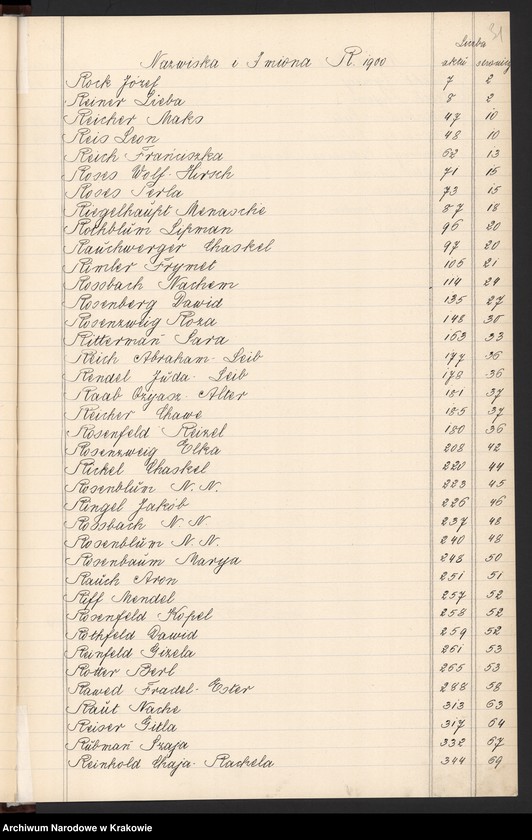 31
Liczba
Nazwiska i Imiona R. 1900 aktu stronicy
Rock Józef 7 2
Reiner Lieba 8 2
Reicher Maks 47 10
Reis Leon 48 10
Reich Franciszka 62 13
Roses Wolf-Hirsch 71 15
Roses Perla 73 15
Riegelhaupt Menasche 87 18
Rothblum Lipman 96 20
Rauchwerger Chaskel 97 20
Rimler Frymet 105 21
Rossbach Nachem 114 24
Rosenberg Dawid 135 27
Rosenzweig Roza 148 30
Ritterman Sara 163 33
Reich Abraham-Leib 177 36
Rendel Juda-Leib 178 36
Raab Ozyasz-Alter 181 37
Reicher Chawe 185 37
Rosenfeld Reizel 180 36
Rosenzweig Elka 208 42
Rickel Chaskel 220 44
Rosenblum N. N. 223 45
Ringel Jakób 226 46
Rossbach N. N. 237 48
Rosenblum N. N. 240 48
Rosenbaum Marya 248 50
Rauch Aron 251 51
Riff Mendel 257 52
Rosenfeld Kopel 258 52
Rothfeld Dawid 259 52
Reinfeld Gizela 261 53
Rotter Berl 265 53
Rawed Fradel-Ester 288 58
Raut Nache 313 63
Reiser Gitla 317 64
Rubman Szaja 332 67
Reinhold Chaja-Rachela 344 69
Archiwum Narodowe w Krakowie